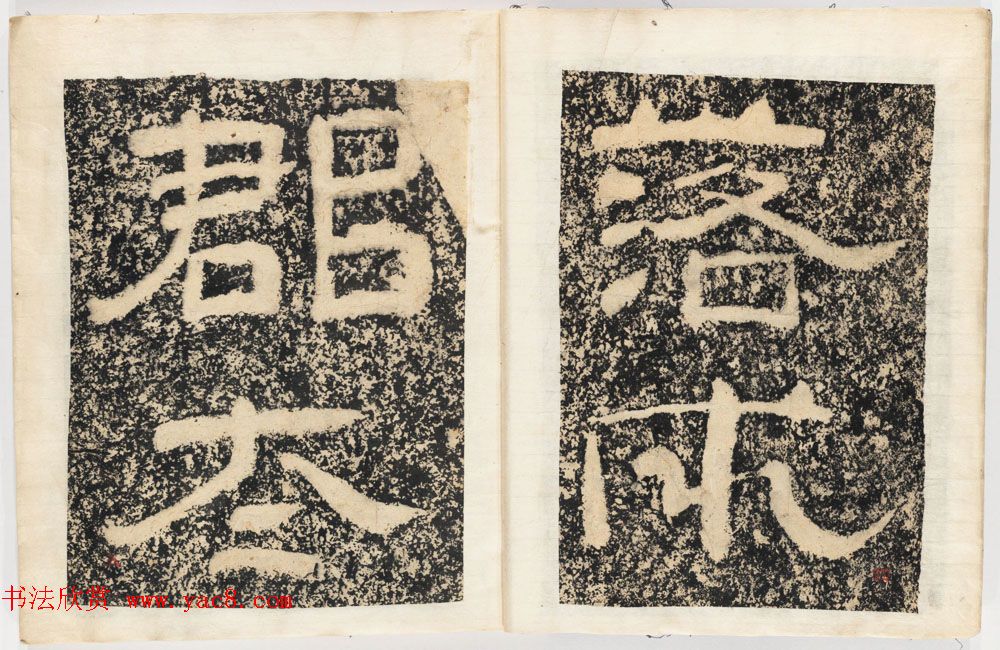 落
郡夳
书法欣赏 www.yac8.com